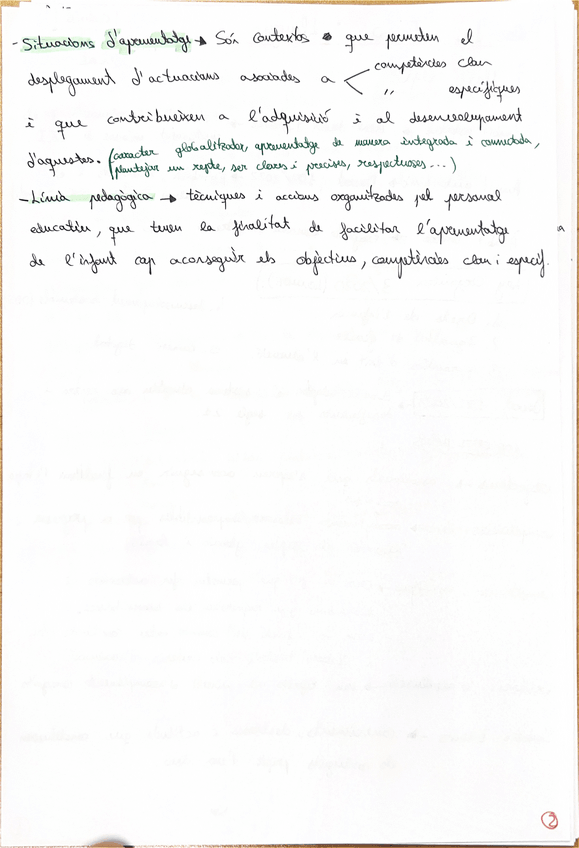 - Situacions d'aprenentatge → Són contextos que permeten el
desplegament d'actuacions asociades a < competències clau
" específiques
i que contribueixen a l'adquisició i al desenvolupament
d'aquestes. (caracter globalitzador, aprenentatge de manera integrada i connectada,
plantejar un repte, ser clares i precises, respectuoses...)
- Línia pedagògica → tècniques i accions organitzades pel personal
educatiu, que tenen la finalitat de facilitar l'aprenentatge
de l'infant cap aconseguir els objectius, competències clau i específ.
2